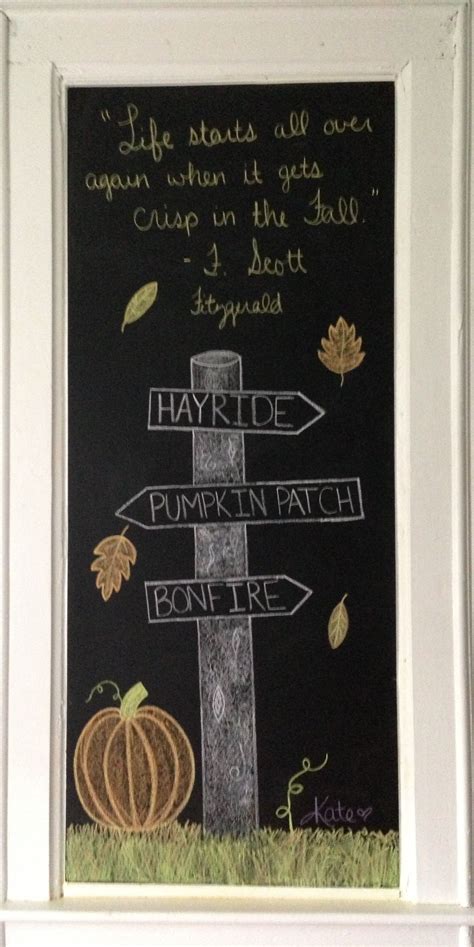 "Life starts all over
again when it gets
crisp in the Fall."
- F. Scott
Fitzgerald
HAYRIDE
PUMPKIN PATCH
BONFIRE
Kate